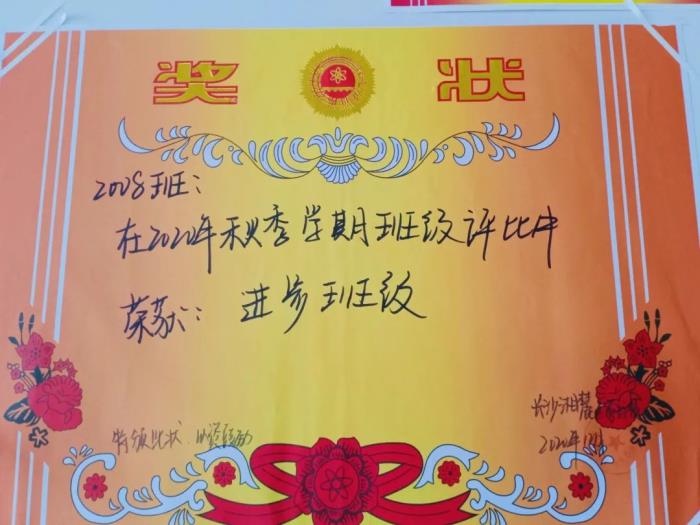 奖状
2008班：
在2020年秋季学期班级评比中
荣获：进步班级
特颁此状，以资鼓励
长沙湘麓
2020年12月